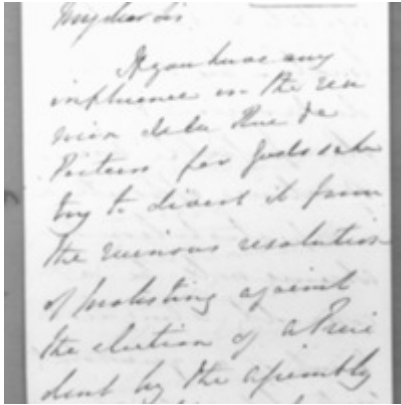 My dear Sir
If you have any
influence in the reu
nion de la Rue de
Poitiers for God's sake
try to divert it from
the ruinous resolution
of protesting against
the election of a Presi
dent by the assembly